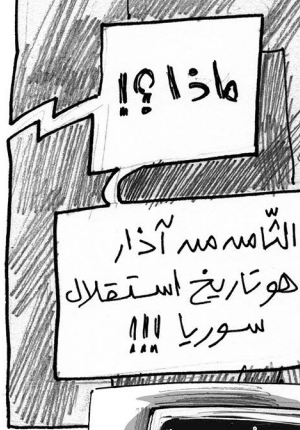 ماذا ؟!
الثّامن من آذار
هو تاريخ استقلال
سوريا !!!